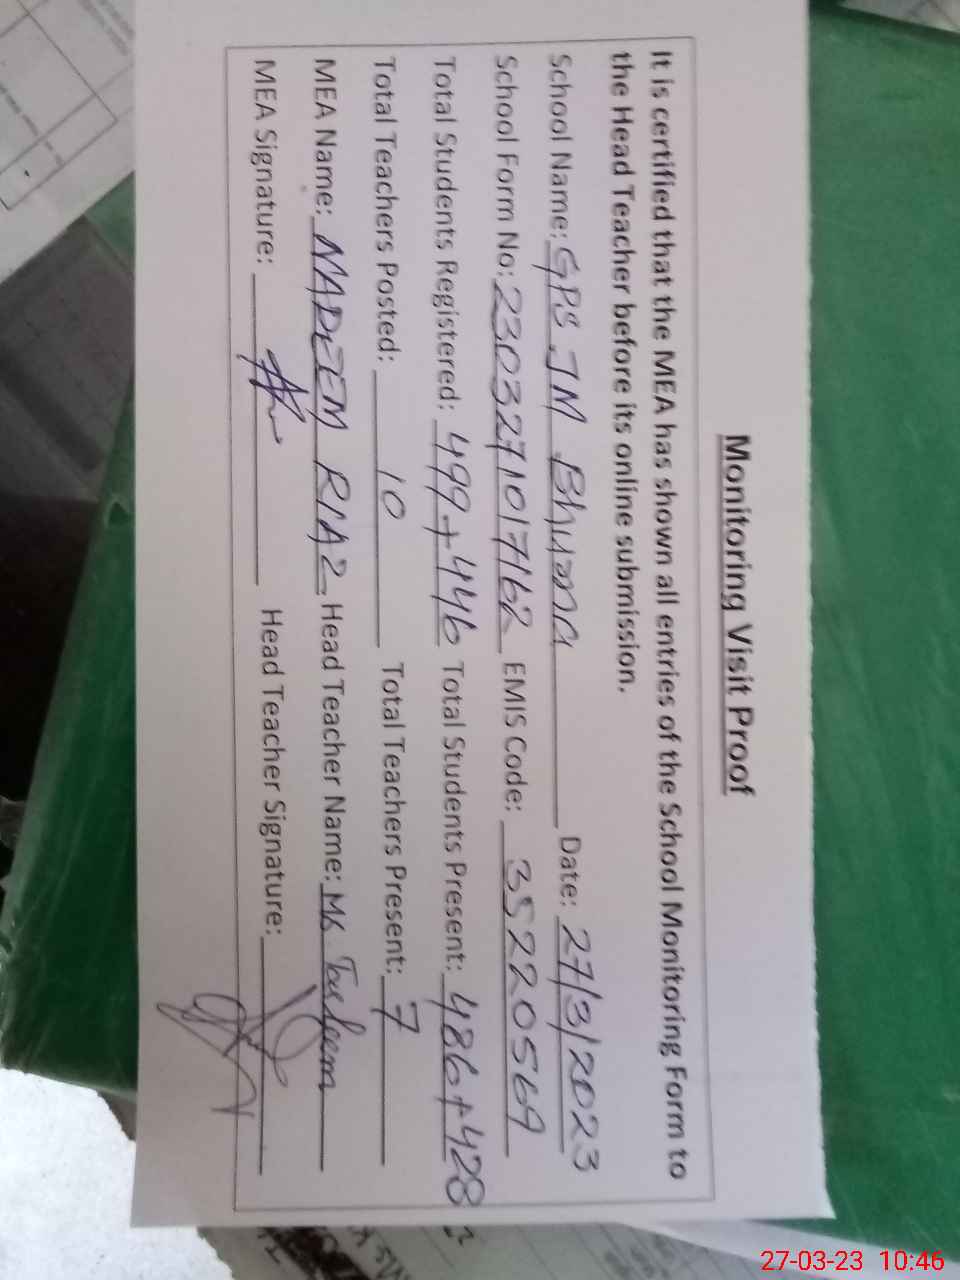 Monitoring Visit Proof
It is certified that the MEA has shown all entries of the School Monitoring Form to
the Head Teacher before its online submission.
School Name: GPS JM Bhuana Date: 27/3/2023
School Form No: 2303271017162 EMIS Code: 35220569
Total Students Registered: 499+446 Total Students Present: 486+428
Total Teachers Posted: 10 Total Teachers Present: 7
MEA Name: NADEEM RIAZ Head Teacher Name: MS
MEA Signature: Head Teacher Signature:
27-03-23 10:46